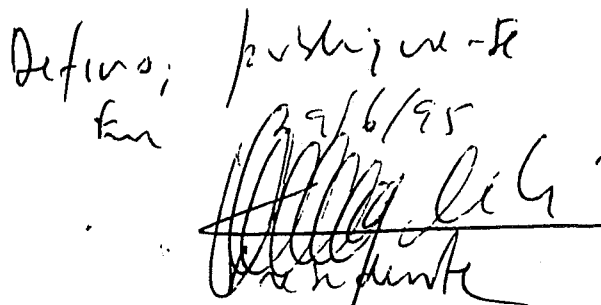 Defiro; publique-se
Em 29/6/95
Presidente